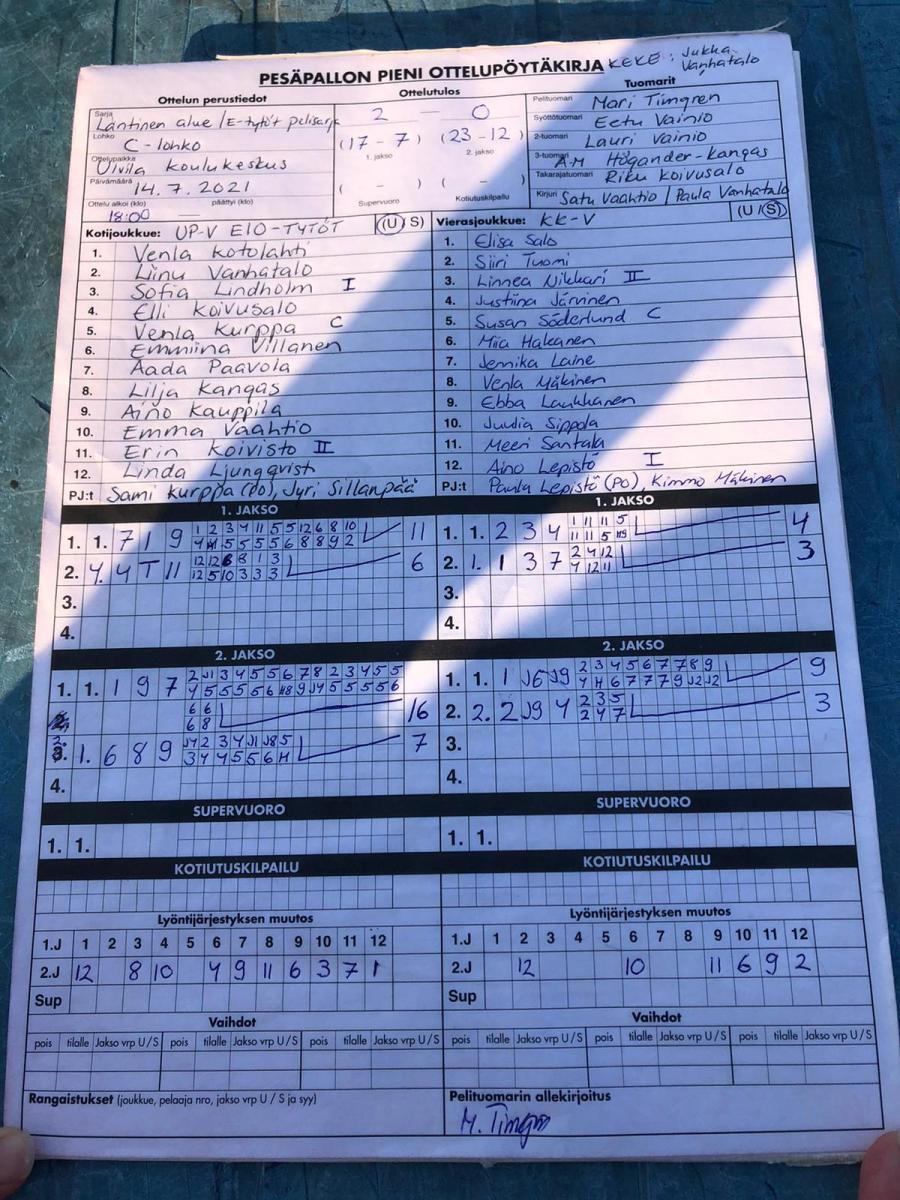 PESÄPALLON PIENI OTTELUPÖYTÄKIRJA KEKE: Jukka Vanhatalo
Ottelun perustiedot
Sarja Läntinen alue / E-tytöt pelisarja
Lohko C-lohko
Ottelupaikka Ulvila koulukeskus
Päivämäärä 14.7.2021
Ottelu alkoi (klo) päättyi (klo)
18:00 —
Ottelutulos
2 — 0
(17 - 7) (23 - 12)
1. jakso 2. jakso
( - ) ( - )
Supervuoro Kotiutuskilpailu
Tuomarit
Pelituomari Mari Timgren
Syöttötuomari Eetu Vainio
2-tuomari Lauri Vainio
3-tuomari A-M Högander-Kangas
Takarajatuomari Riku Koivusalo
Kirjuri Satu Vaahtio / Paula Vanhatalo
Kotijoukkue: UP-V E10-TYTÖT (U/S)
1. Venla Kotolahti
2. Liinu Vanhatalo
3. Sofia Lindholm I
4. Elli Koivusalo
5. Venla Kurppa C
6. Emmiina Villanen
7. Aada Paavola
8. Lilja Kangas
9. Aino Kauppila
10. Emma Vaahtio
11. Erin Koivisto II
12. Linda Ljungqvist
PJ:t Sami Kurppa (PO), Jyri Sillanpää
Vierasjoukkue: KK-V (U/S)
1. Elisa Salo
2. Siiri Tuomi
3. Linnea Nikkari II
4. Justiina Järvinen
5. Susan Söderlund C
6. Miia Hakanen
7. Jennika Laine
8. Venla Mäkinen
9. Ebba Laukkanen
10. Juulia Sippola
11. Meeri Santala
12. Aino Lepistö I
PJ:t Paula Lepistö (PO), Kimmo Mäkinen
1. JAKSO
1 2 3 4 11 5 5 12 6 8 10
1. 1. 7 1 9 11
2. 4. 4 T 11 6
12 5 10 3 3 3
3.
4.
1. JAKSO
1 11 11 5
1. 1. 2 3 4 4
2 4 12
2. 1. 1 3 7 3
4 12 11
3.
4.
2. JAKSO
1. 1. 1 9 7
6 6
6 8 16
1. 6 8 9 7
4.
2. JAKSO
2 3 4 5 6 7 7 8 9
1. 1. 1 J6 J9 9
4 H 6 7 7 7 9 J2 J2
2 3 5
2. 2. 2 J9 4 3
2 4 7
3.
4.
SUPERVUORO
1. 1.
SUPERVUORO
1. 1.
KOTIUTUSKILPAILU
KOTIUTUSKILPAILU
Lyöntijärjestyksen muutos
1.J 1 2 3 4 5 6 7 8 9 10 11 12
2.J 12 8 10 4 9 11 6 3 7 1
Sup
Lyöntijärjestyksen muutos
1.J 1 2 3 4 5 6 7 8 9 10 11 12
2.J 12 10 11 6 9 2
Sup
Vaihdot
pois tilalle Jakso vrp U/S pois tilalle Jakso vrp U/S pois tilalle Jakso vrp U/S
Vaihdot
pois tilalle Jakso vrp U/S pois tilalle Jakso vrp U/S pois tilalle Jakso vrp U/S
Rangaistukset (joukkue, pelaaja nro, jakso vrp U / S ja syy)
Pelituomarin allekirjoitus
M. Timgren